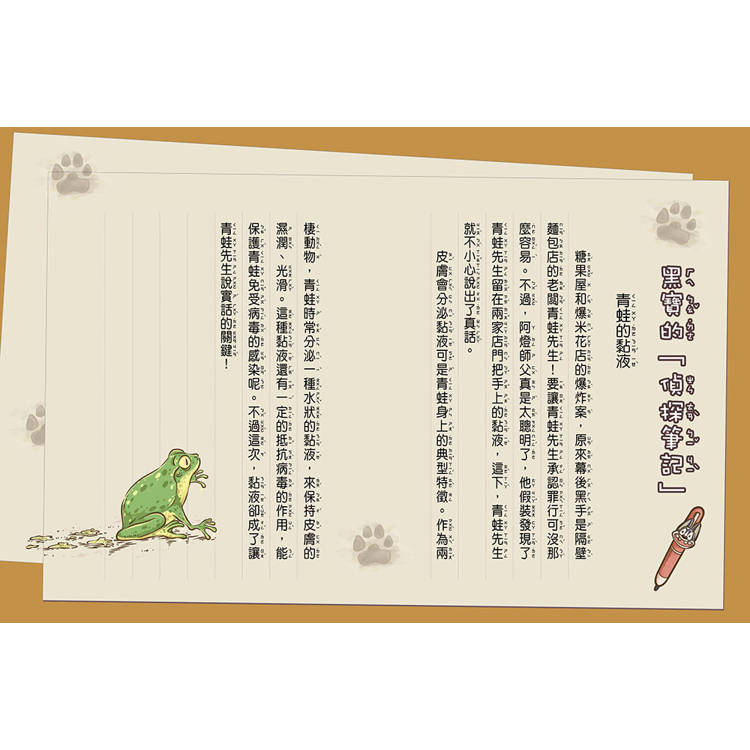 黑寶的「偵探筆記」
青蛙的黏液
糖果屋和爆米花店的爆炸案，原來幕後黑手是隔壁
麵包店的老闆青蛙先生！要讓青蛙先生承認罪行可沒那
麼容易。不過，阿燈師父真是太聰明了，他假裝發現了
青蛙先生留在兩家店門把手上的黏液，這下，青蛙先生
就不小心說出了真話。
皮膚會分泌黏液可是青蛙身上的典型特徵。作為兩
棲動物，青蛙時常分泌一種水狀的黏液，來保持皮膚的
濕潤、光滑。這種黏液還有一定的抵抗病毒的作用，能
保護青蛙免受病毒的感染呢。不過這次，黏液卻成了讓
青蛙先生說實話的關鍵！